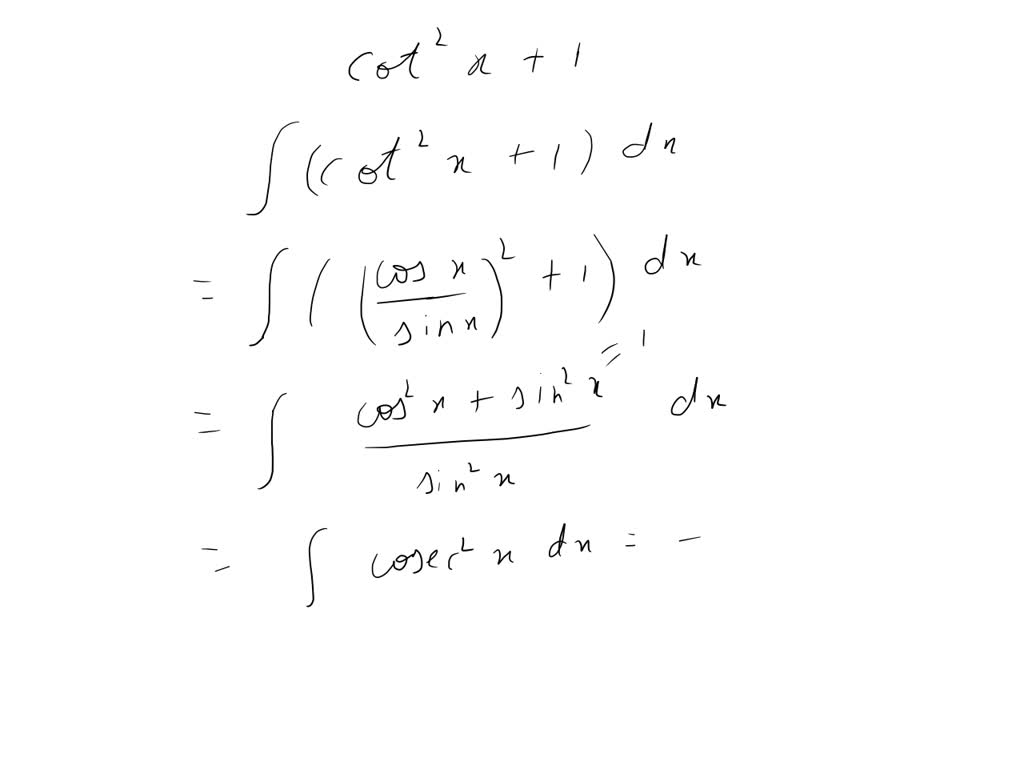 cot² x + 1
∫ (cot² x + 1) dx
= ∫ ( (cos x / sin x)² + 1 ) dx
= ∫ (cos² x + sin² x = 1) / (sin² x) dx
= ∫ cosec² x dx = -